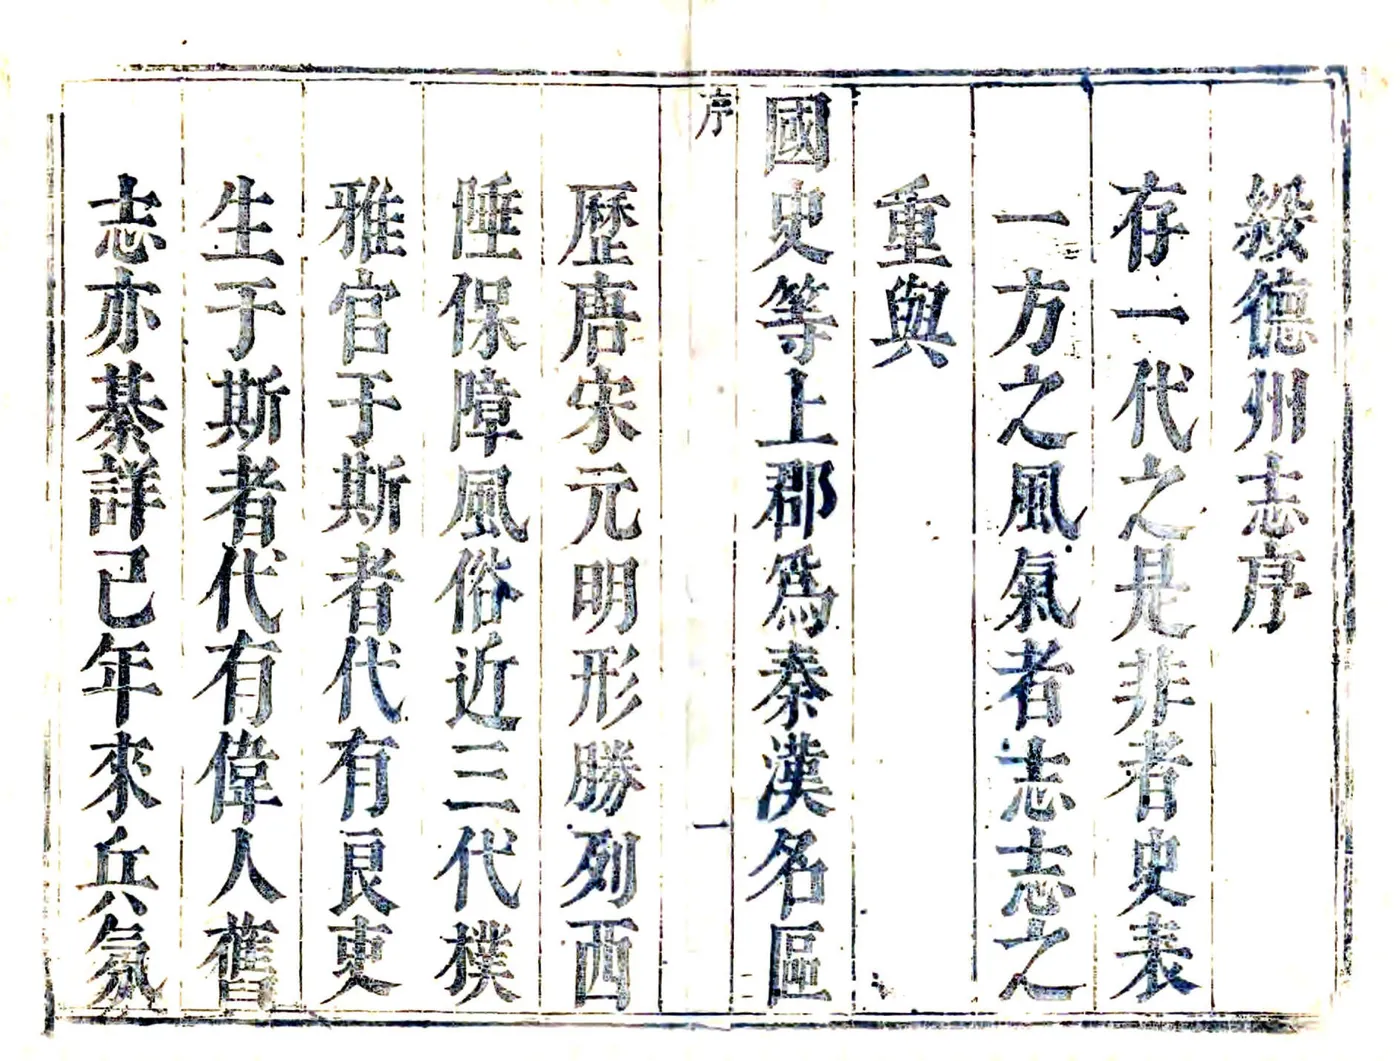 綏德州志序
存一代之是非者史表
一方之風氣者志志之
重與
國史等上郡爲秦漢名區
序
一
歷唐宋元明形勝列西
陲保障風俗近三代樸
雅官于斯者代有良吏
生于斯者代有偉人舊
志亦綦詳已年來兵氛